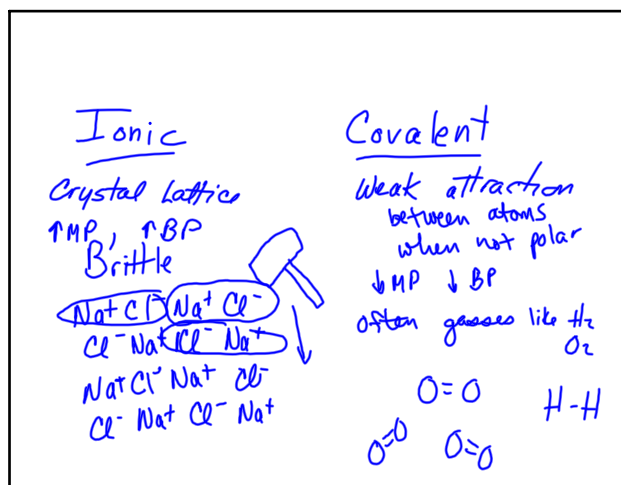 Ionic
Crystal Lattice
↑MP, ↑BP
Brittle
Na+ Cl- Na+ Cl-
Cl- Na+ Cl- Na+
Na+ Cl- Na+ Cl-
Cl- Na+ Cl- Na+
Covalent
Weak attraction
between atoms
when not polar
↓MP ↓BP
often gasses like H2
O2
O=O
H-H
O=O O=O